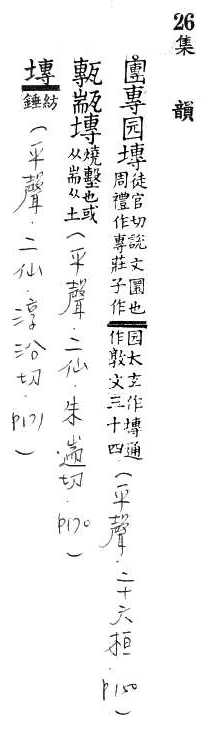 26集韻
團專园塼徒官切說文圜也周禮作專莊子作园太玄作塼通作敦文三十四(平聲.二十六桓.p150)
甎㼷塼燒墼也或从耑从土(平聲.二仙.朱遄切.p170)
塼紡錘(平聲.二仙.淳沿切.p171)